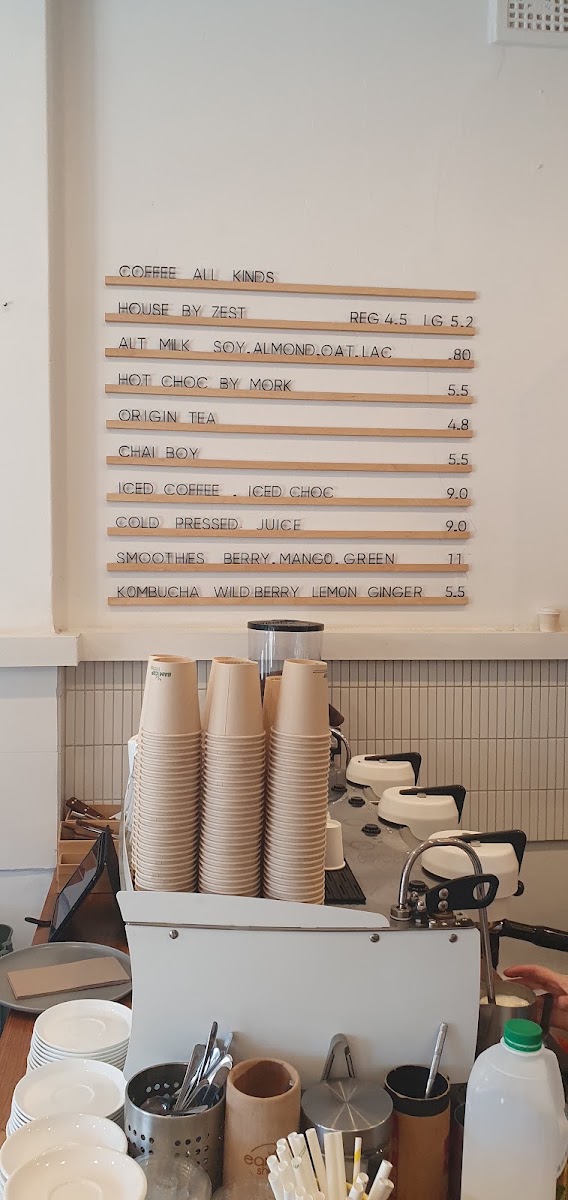 COFFEE ALL KINDS
HOUSE BY ZEST REG 4.5 LG 5.2
ALT MILK SOY.ALMOND.OAT.LAC .80
HOT CHOC BY MORK 5.5
ORIGIN TEA 4.8
CHAI BOY 5.5
ICED COFFEE . ICED CHOC 9.0
COLD PRESSED JUICE 9.0
SMOOTHIES BERRY.MANGO.GREEN 11
KOMBUCHA WILD BERRY LEMON GINGER 5.5